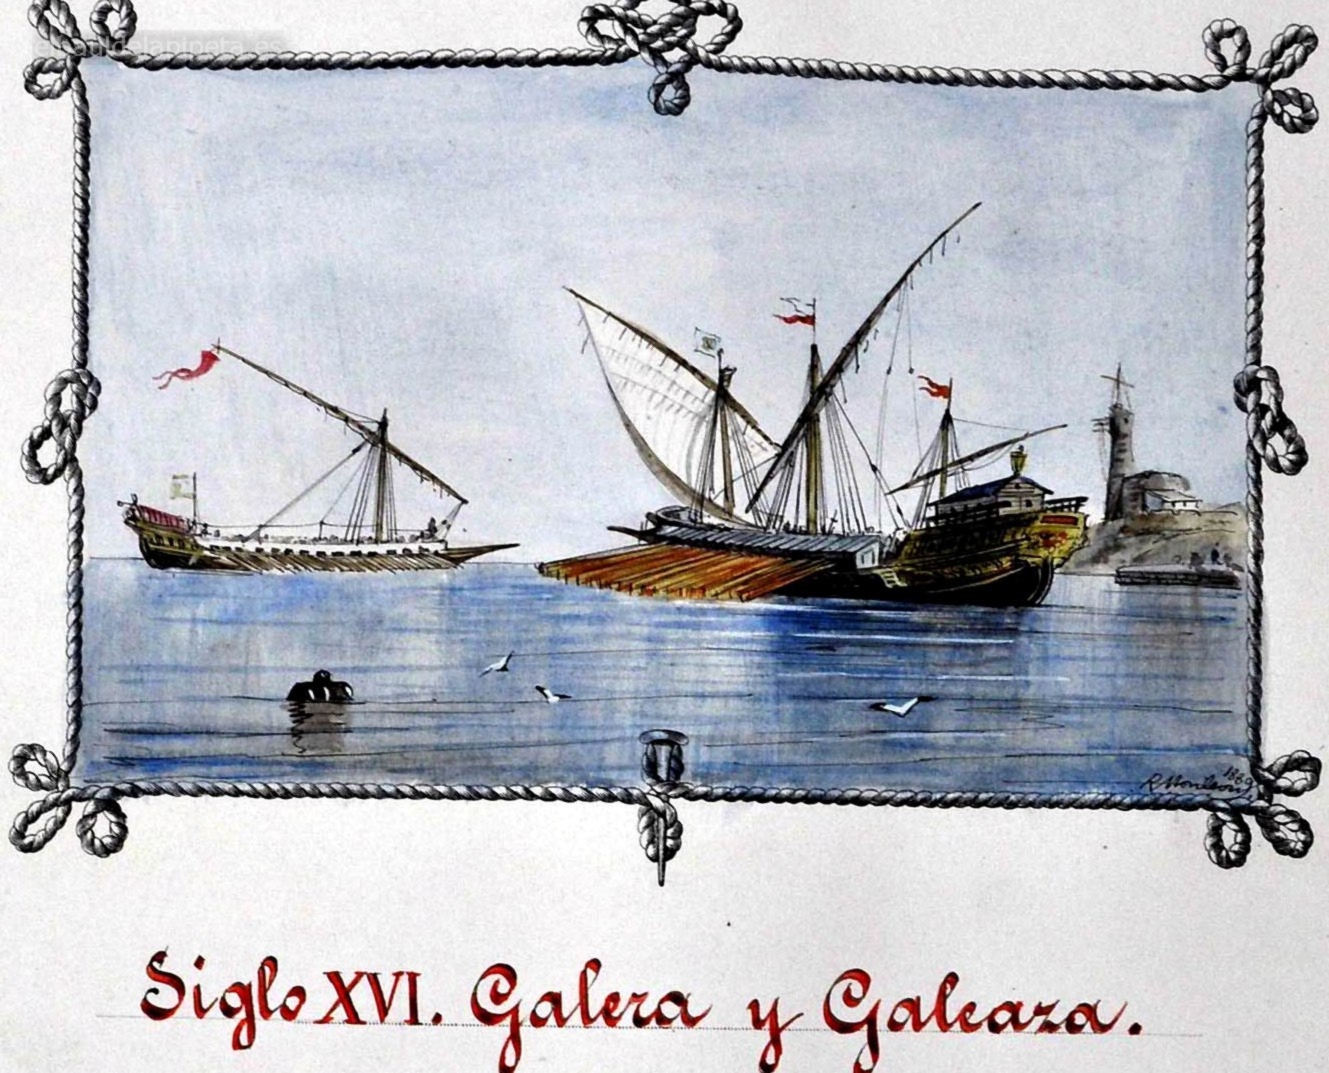 R. Monleon
1889
Siglo XVI. Galera y Galeaza.